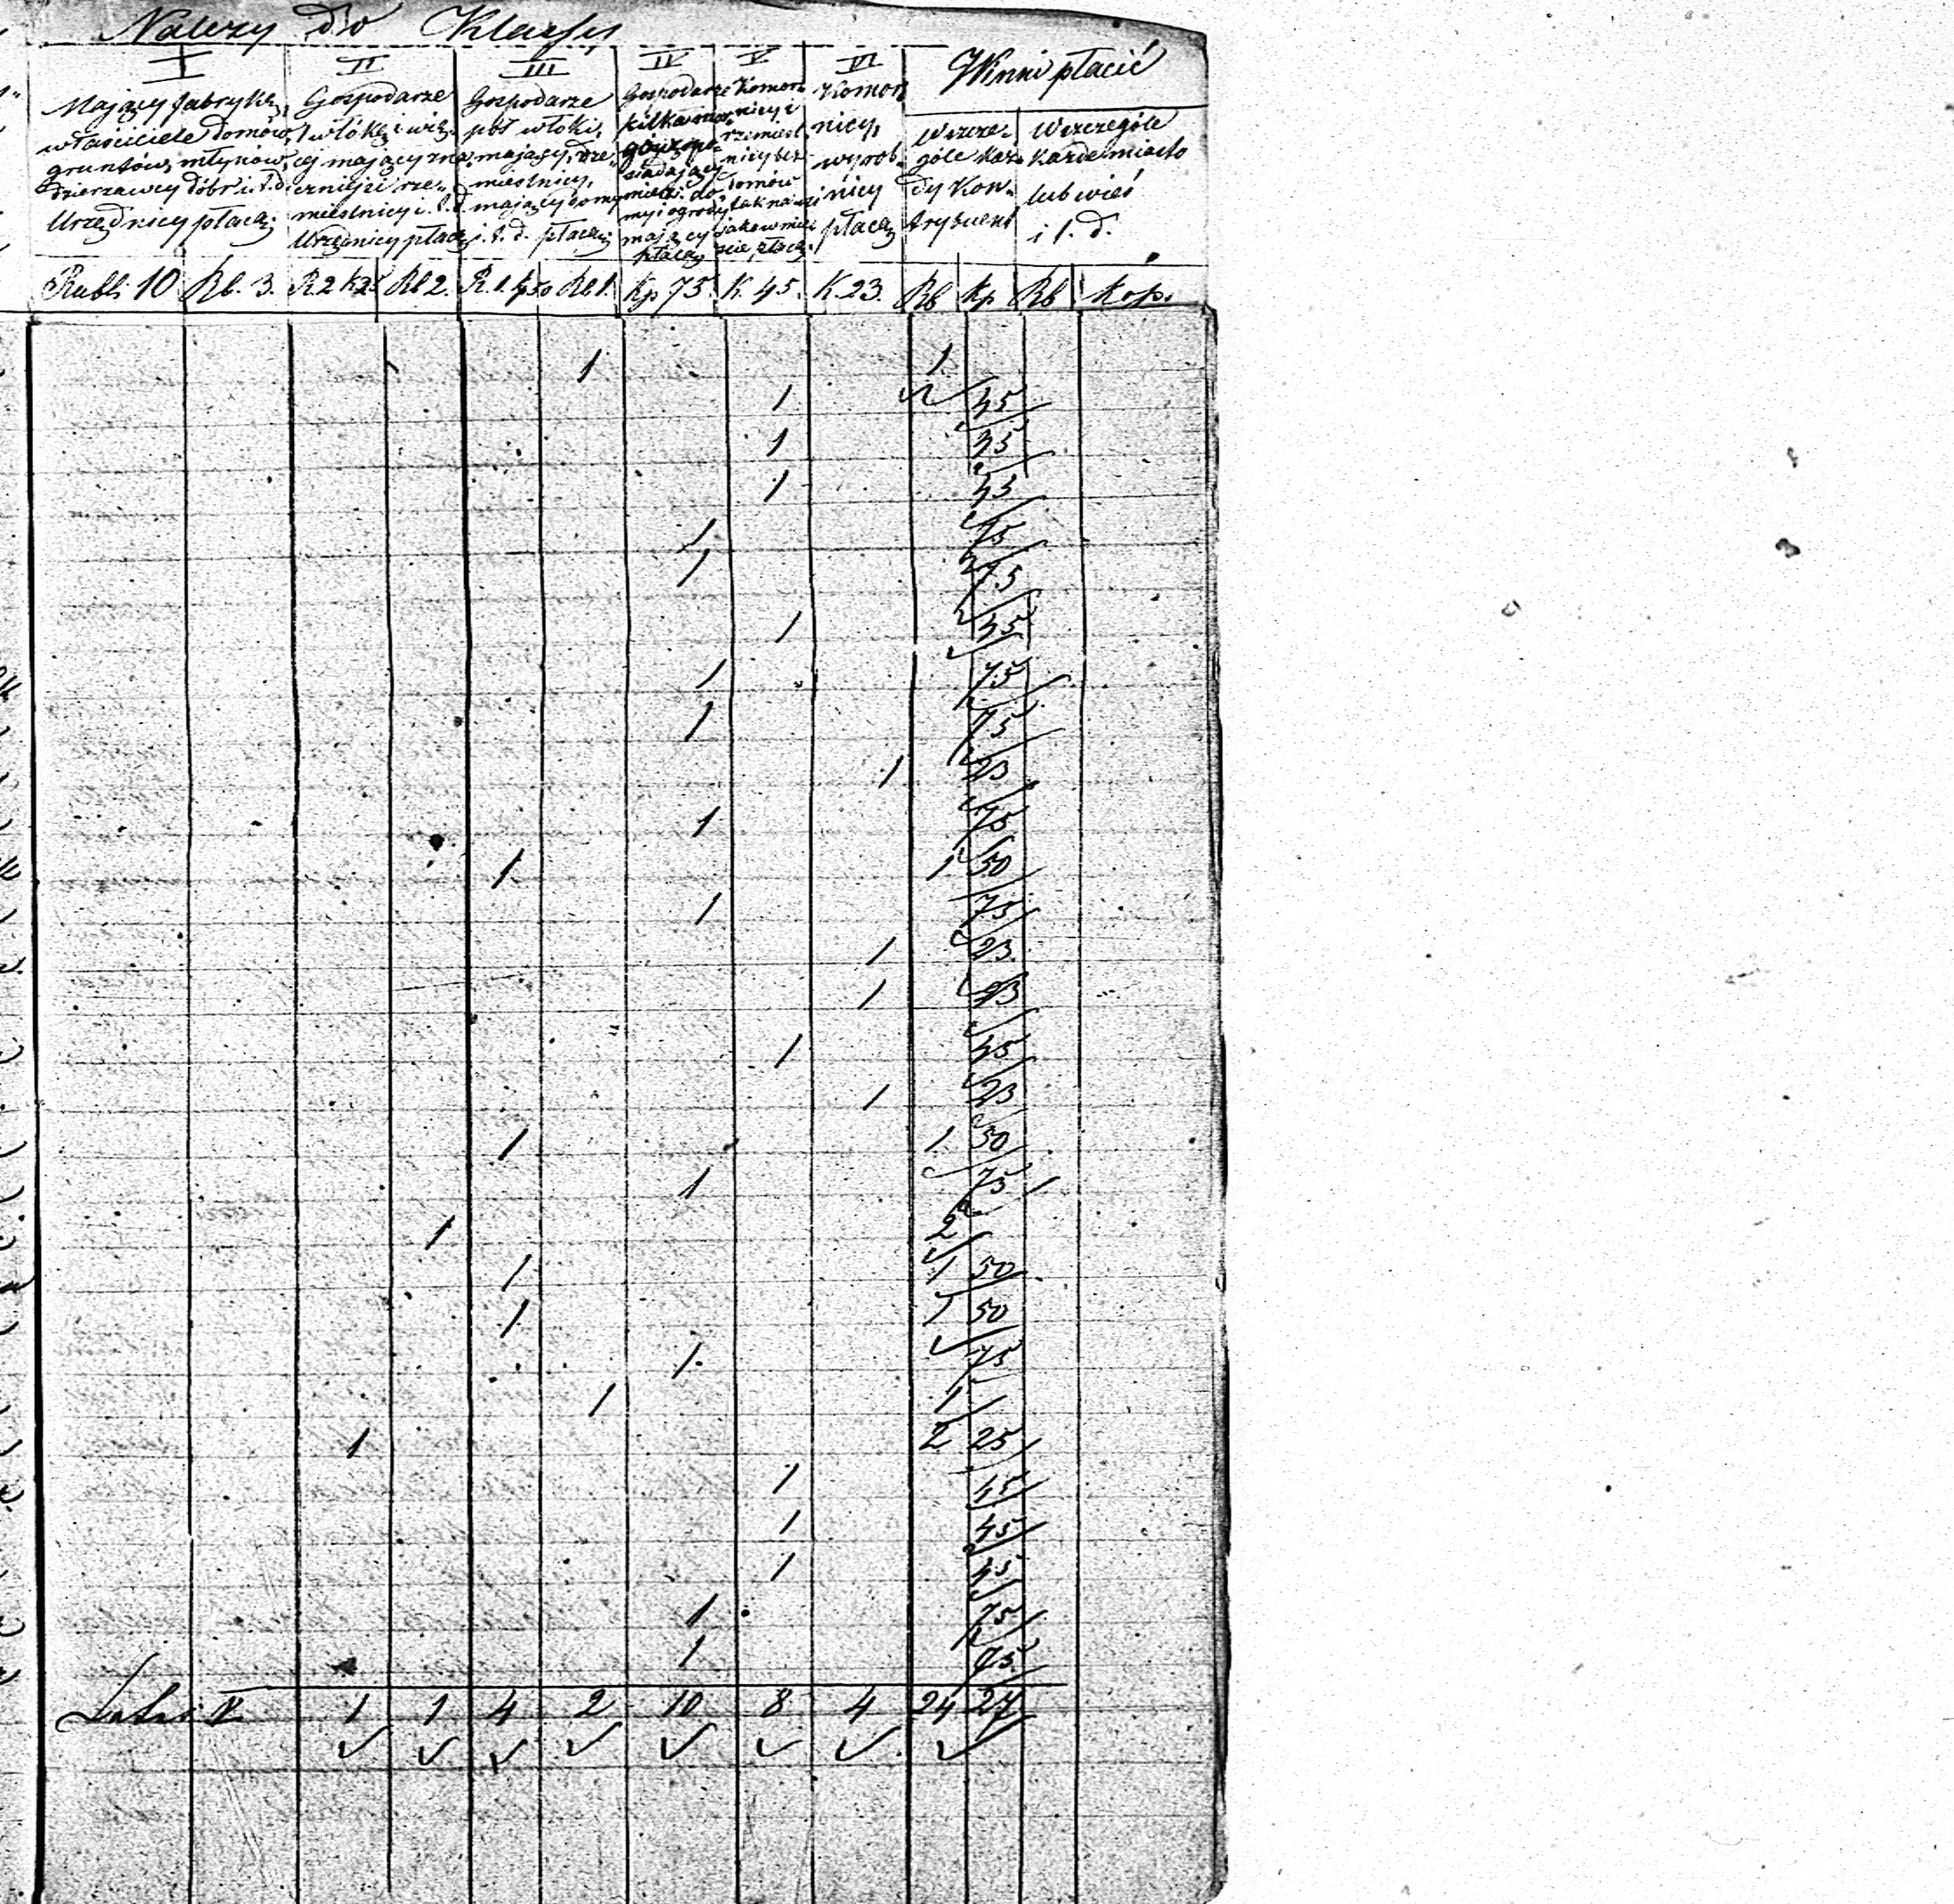 Należy do Klassy
I II III IV V VI Winni płacić
Mający fabrykę,
właściciele domów,
gruntów, młynów,
dzierzawcy dóbr i t. d.
Urzędnicy płacą
Gospodarze
1 włókę i wię-
cej mający zna-
czniejsi rze-
mieślnicy i t. d.
Urzędnicy płacą
Gospodarze
pół włóki,
mający, rze-
mieślnicy,
mający domy
i. t. d. płacą
Gospodarze
kilka mor-
gów po-
siadający
mający
płacą
Komor-
nicy i
rzemieśl-
nicy bez
domów
płacą
Komor-
nicy,
wyrob-
nicy
płacą
Wszcze-
góle każ-
dy Kon-
trybuent
Wszczególe
każde miasto
lub wieś
i t. d.
Rubli 10 Rb. 3. R. 2 k 25 Rb 2. R. 1. k 50 Rb 1. Kp 75. K. 45. K. 23. Rb Kp Rb Kop.
1 1
1 45
1 45
1 45
1 75
1 75
1 45
1 75
1 75
1 23
1 75
1 1 50
1 75
1 23
1 23
1 45
1 23
1 1 50
1 75
1 2
1 1 50
1 1 50
1 75
1 1
1 2 25
1 45
1 45
1 45
1 75
1 75
Latus V 1 1 4 2 10 8 4 24 27